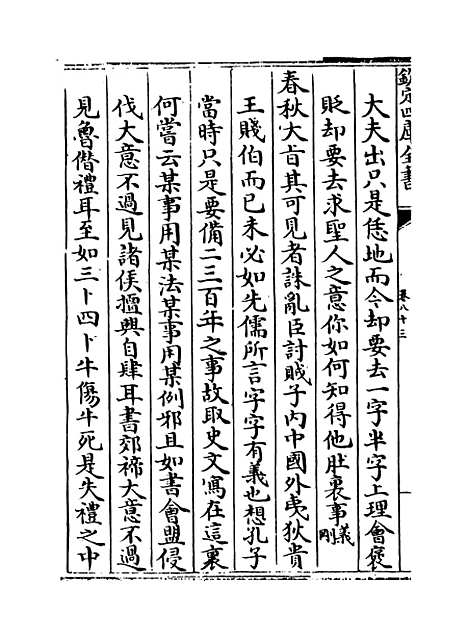 欽定四庫全書
卷八十三
大夫出只是恁地而今却要去一字半字上理會褒
貶却要去求聖人之意你如何知得他肚裏事義剛
春秋大㫖其可見者誅亂臣討賊子内中國外夷狄貴
王賤伯而已未必如先儒所言字字有義也想孔子
當時只是要備二三百年之事故取史文寫在這裏
何嘗云某事用某法某事用某例邪且如書會盟侵
伐大意不過見諸侯擅興自肆耳書郊禘大意不過
見魯僣禮耳至如三卜四卜牛傷牛死是失禮之中